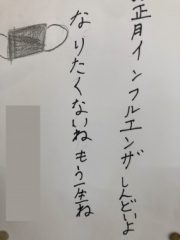 正月インフルエンザしんどいよ
なりたくないねもう一生ね